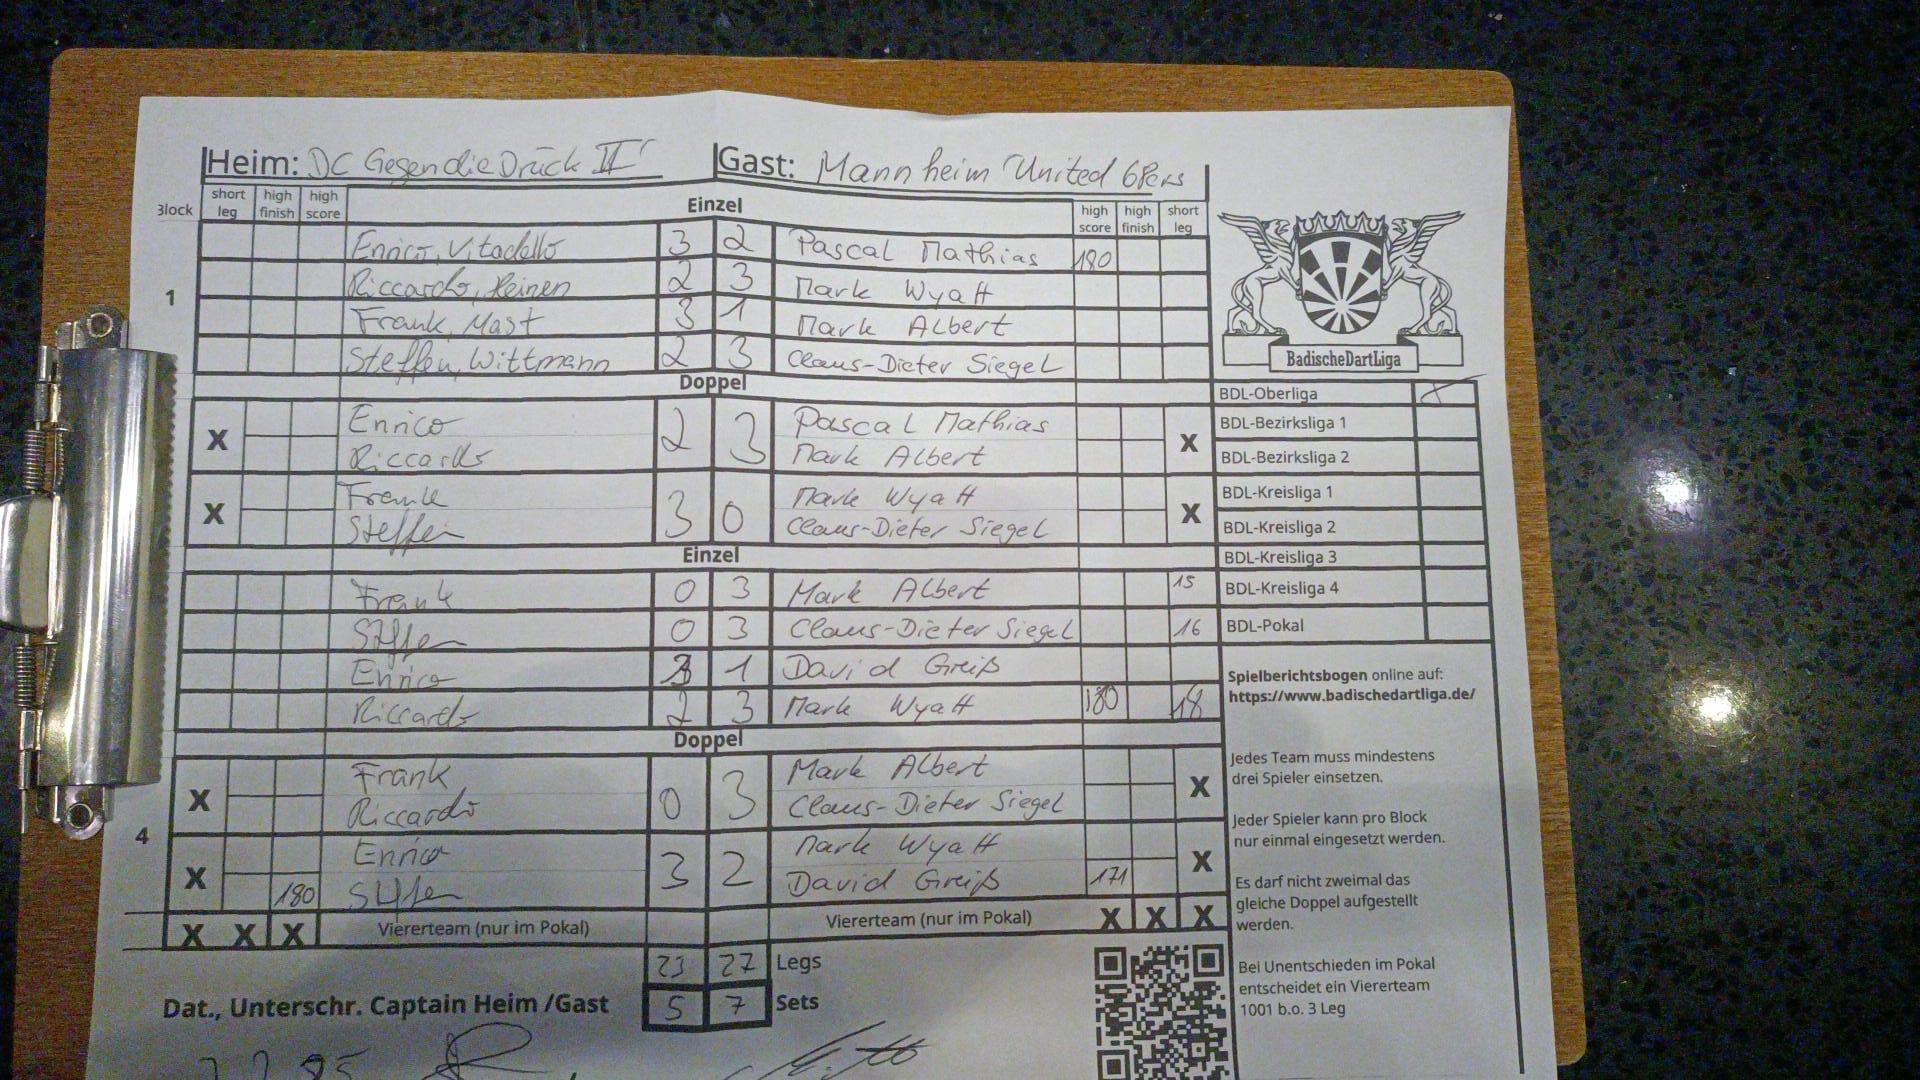 Heim: DC Gegen die Drück II Gast: Mannheim United 68ers
Block short leg high finish high score Einzel high score high finish short leg
Enrico, Vitadello 3 2 Pascal Mathias 180
1 Riccardo, Reinen 2 3 Mark Wyatt
Frank, Mast 3 1 Mark Albert
Steffen, Wittmann 2 3 Claus-Dieter Siegel
Doppel
X Enrico 2 3 Pascal Mathias X
Riccardo Mark Albert
X Frank 3 0 Mark Wyatt X
Steffen Claus-Dieter Siegel
Einzel
Frank 0 3 Mark Albert 15
Steffen 0 3 Claus-Dieter Siegel 16
Enrico 3 1 David Greiß
Riccardo 2 3 Mark Wyatt 180 18
Doppel
X Frank 0 3 Mark Albert X
Riccardo Claus-Dieter Siegel
4
X Enrico 3 2 Mark Wyatt X
180 Steffen David Greiß 171
X X X Viererteam (nur im Pokal) Viererteam (nur im Pokal) X X X
23 27 Legs
Dat., Unterschr. Captain Heim /Gast 5 7 Sets
BadischeDartLiga
BDL-Oberliga X
BDL-Bezirksliga 1
BDL-Bezirksliga 2
BDL-Kreisliga 1
BDL-Kreisliga 2
BDL-Kreisliga 3
BDL-Kreisliga 4
BDL-Pokal
Spielberichtsbogen online auf:
https://www.badischedartliga.de/
Jedes Team muss mindestens
drei Spieler einsetzen.
Jeder Spieler kann pro Block
nur einmal eingesetzt werden.
Es darf nicht zweimal das
gleiche Doppel aufgestellt
werden.
Bei Unentschieden im Pokal
entscheidet ein Viererteam
1001 b.o. 3 Leg